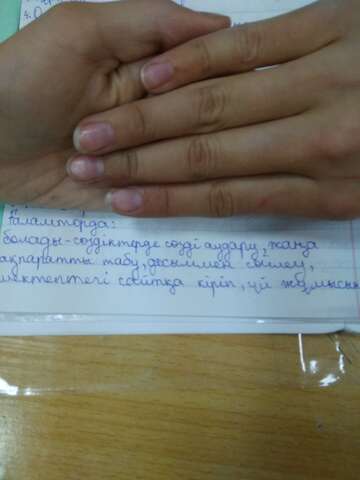 Ғаламторда:
болады-сөздіктерде сөзді аудару, жаңа
ақпаратты табу, досыммен сөйлеу,
мектептегі сайтқа кіріп, үй жұмысын